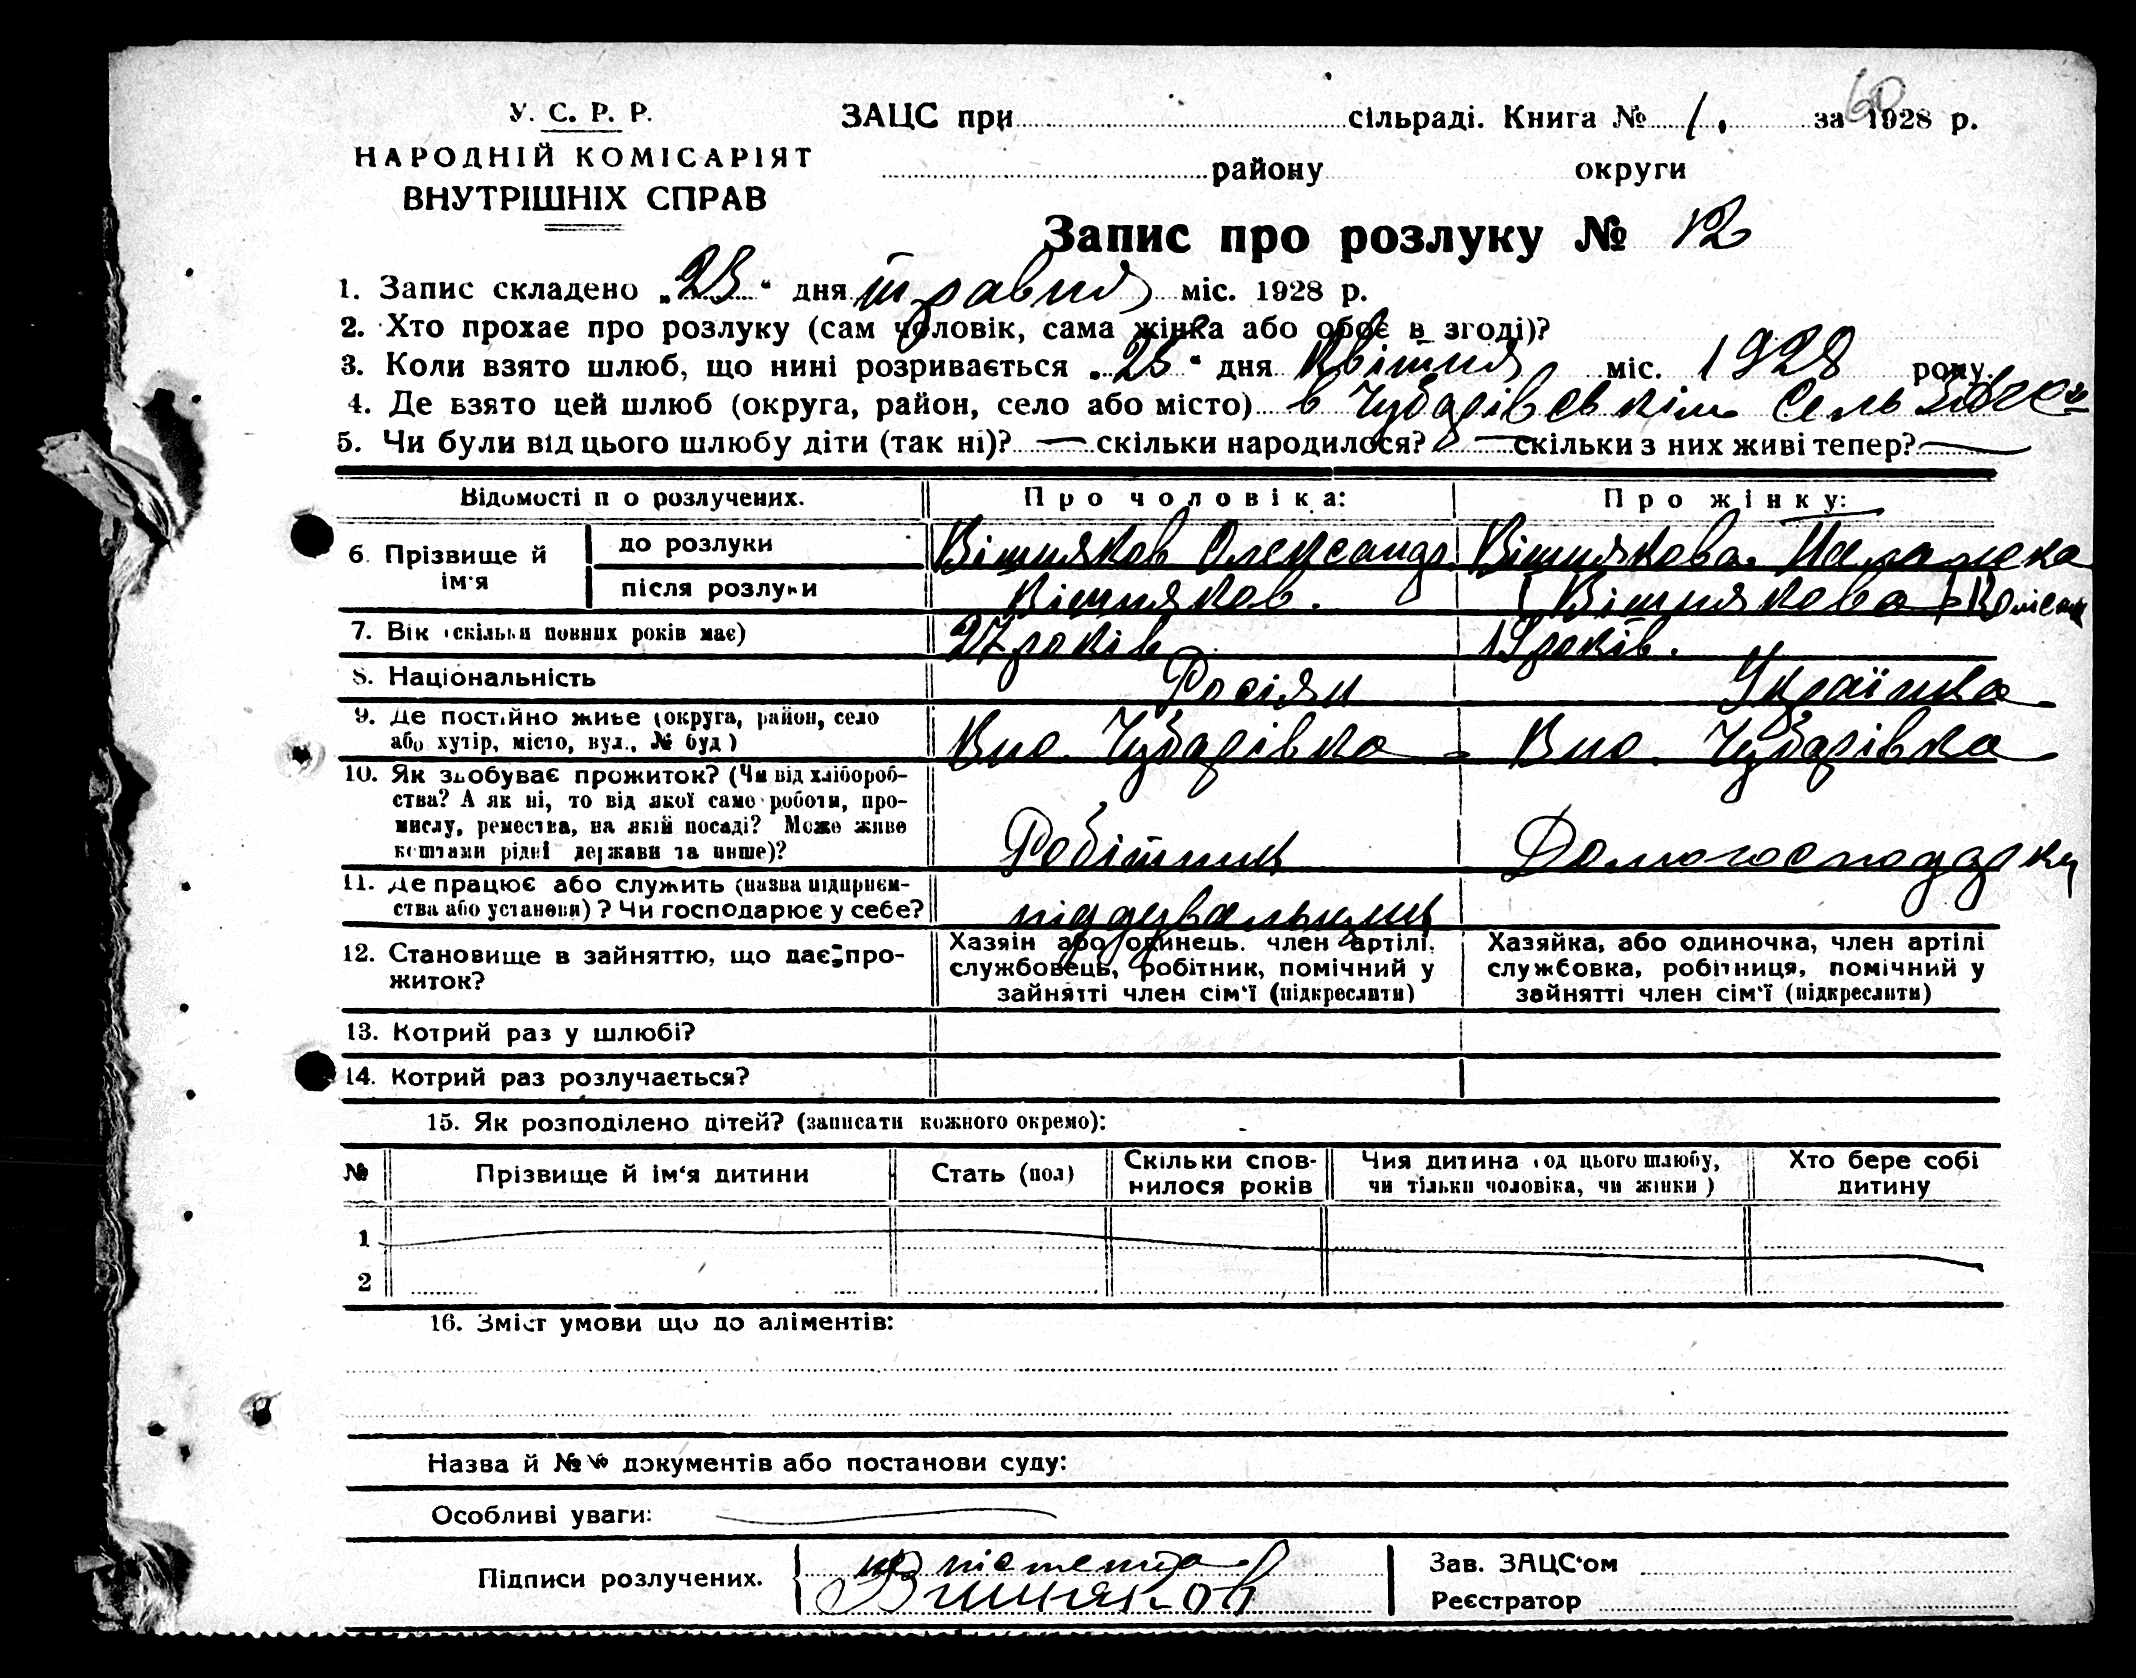 60
У. С. Р. Р.
НАРОДНІЙ КОМІСАРІЯТ
ВНУТРІШНІХ СПРАВ
ЗАЦС при сільраді. Книга № 1. за 1928 р.
району округи
Запис про розлуку № 12
1. Запис складено „23“ дня травня міс. 1928 р.
2. Хто прохає про розлуку (сам чоловік, сама жінка або обоє в згоді)?
3. Коли взято шлюб, що нині розривається „25“ дня Квітня міс. 1928 року.
4. Де взято цей шлюб (округа, район, село або місто) в Чубарівськім Сель
5. Чи були від цього шлюбу діти (так ні)? — скільки народилося? — скільки з них живі тепер? —
Відомості по розлучених. Про чоловіка: Про жінку:
6. Прізвище й ім'я до розлуки Вішняков Олександр Вішнякова
після розлуки Вішняков. Вішнякова
7. Вік (скільки повних років має) 27 років 19 років.
8. Національність Росіян Українка
9. Де постійно живе (округа, район, село або хутір, місто, вул., № буд) Чубарівка Чубарівка
10. Як здобуває прожиток? (Чи від хлібороб-
ства? А як ні, то від якої само роботи, про-
мислу, ремества, на якій посаді? Може живе
коштами рідні держави та инше)? Робітник Домогосподарка
11. Де працює або служить (назва підприєм-
ства або установи)? Чи господарює у себе? піддувальщик
12. Становище в зайняттю, що дає про-
житок?
Хазяїн або одинець. член артілі,
службовець, робітник, помічний у
зайнятті член сім'ї (підкреслити)
Хазяйка, або одиночка, член артілі
службовка, робітниця, помічний у
зайнятті член сім'ї (підкреслити)
13. Котрий раз у шлюбі?
14. Котрий раз розлучається?
15. Як розподілено дітей? (записати кожного окремо):
№ Прізвище й ім'я дитини Стать (пол) Скільки спов-
нилося років Чия дитина (од цього шлюбу,
чи тільки чоловіка, чи жінки) Хто бере собі
дитину
1
2
16. Зміст умови що до аліментів:
Назва й №№ документів або постанови суду:
Особливі уваги:
Підписи розлучених.
Вишняков
Зав. ЗАЦС'ом
Реєстратор